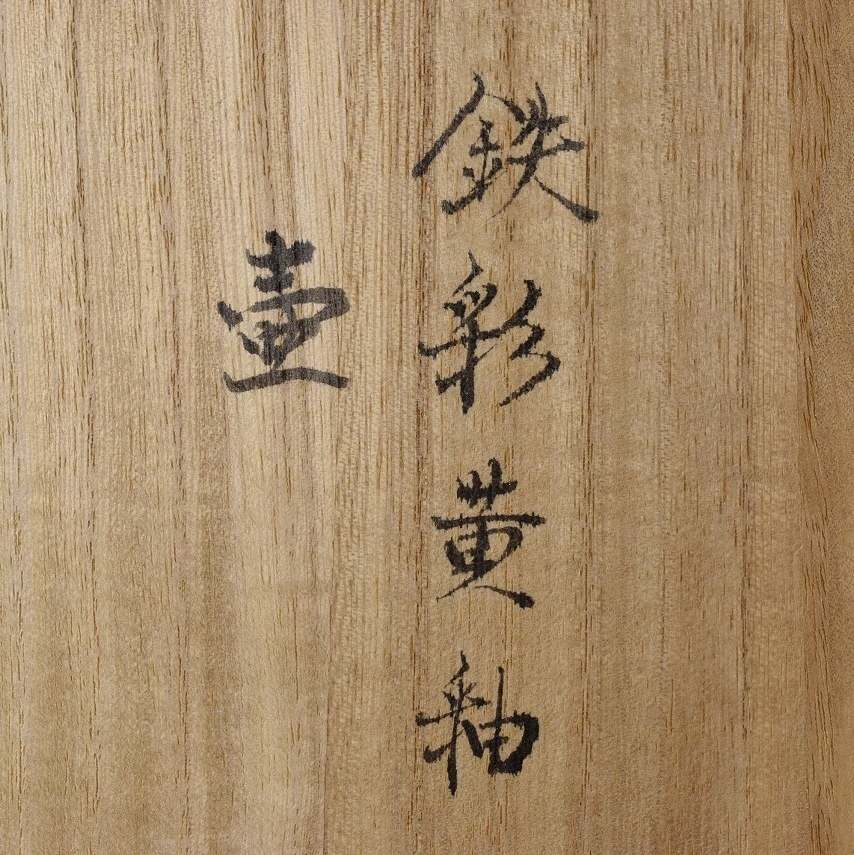 鉄彩黄釉
壷